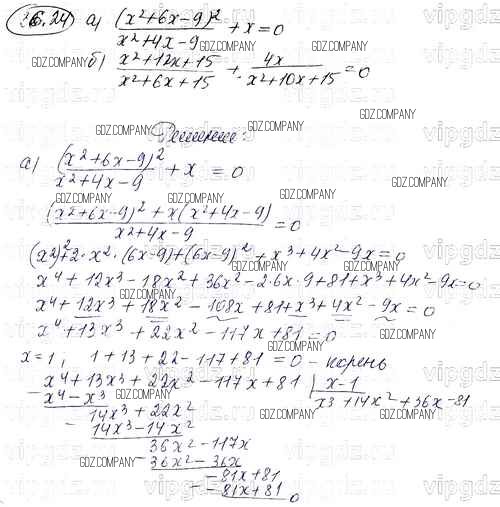 26.24 а) (x²+6x-9)²/(x²+4x-9) + x = 0
б) (x²+12x+15)/(x²+6x+15) + 4x/(x²+10x+15) = 0
Решение:
а) (x²+6x-9)²/(x²+4x-9) + x = 0
((x²+6x-9)² + x(x²+4x-9))/(x²+4x-9) = 0
(x²)²+2·x²·(6x-9)+(6x-9)² + x³+4x²-9x=0
x⁴+12x³-18x²+36x²-2·6x·9+81+x³+4x²-9x=0
x⁴+12x³+18x²-108x+81+x³+4x²-9x=0
x⁴+13x³+22x²-117x+81=0
x=1, 1+13+22-117+81=0 - корень
x⁴+13x³+22x²-117x+81 | x-1
- x⁴-x³ x³+14x²+36x-81
14x³+22x²
- 14x³-14x²
36x²-117x
- 36x²-36x
-81x+81
- -81x+81
0
GDZ.COMPANY
vipgdz.ru